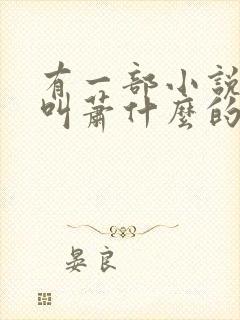 有一部小說
叫蕭什麼的
晏良